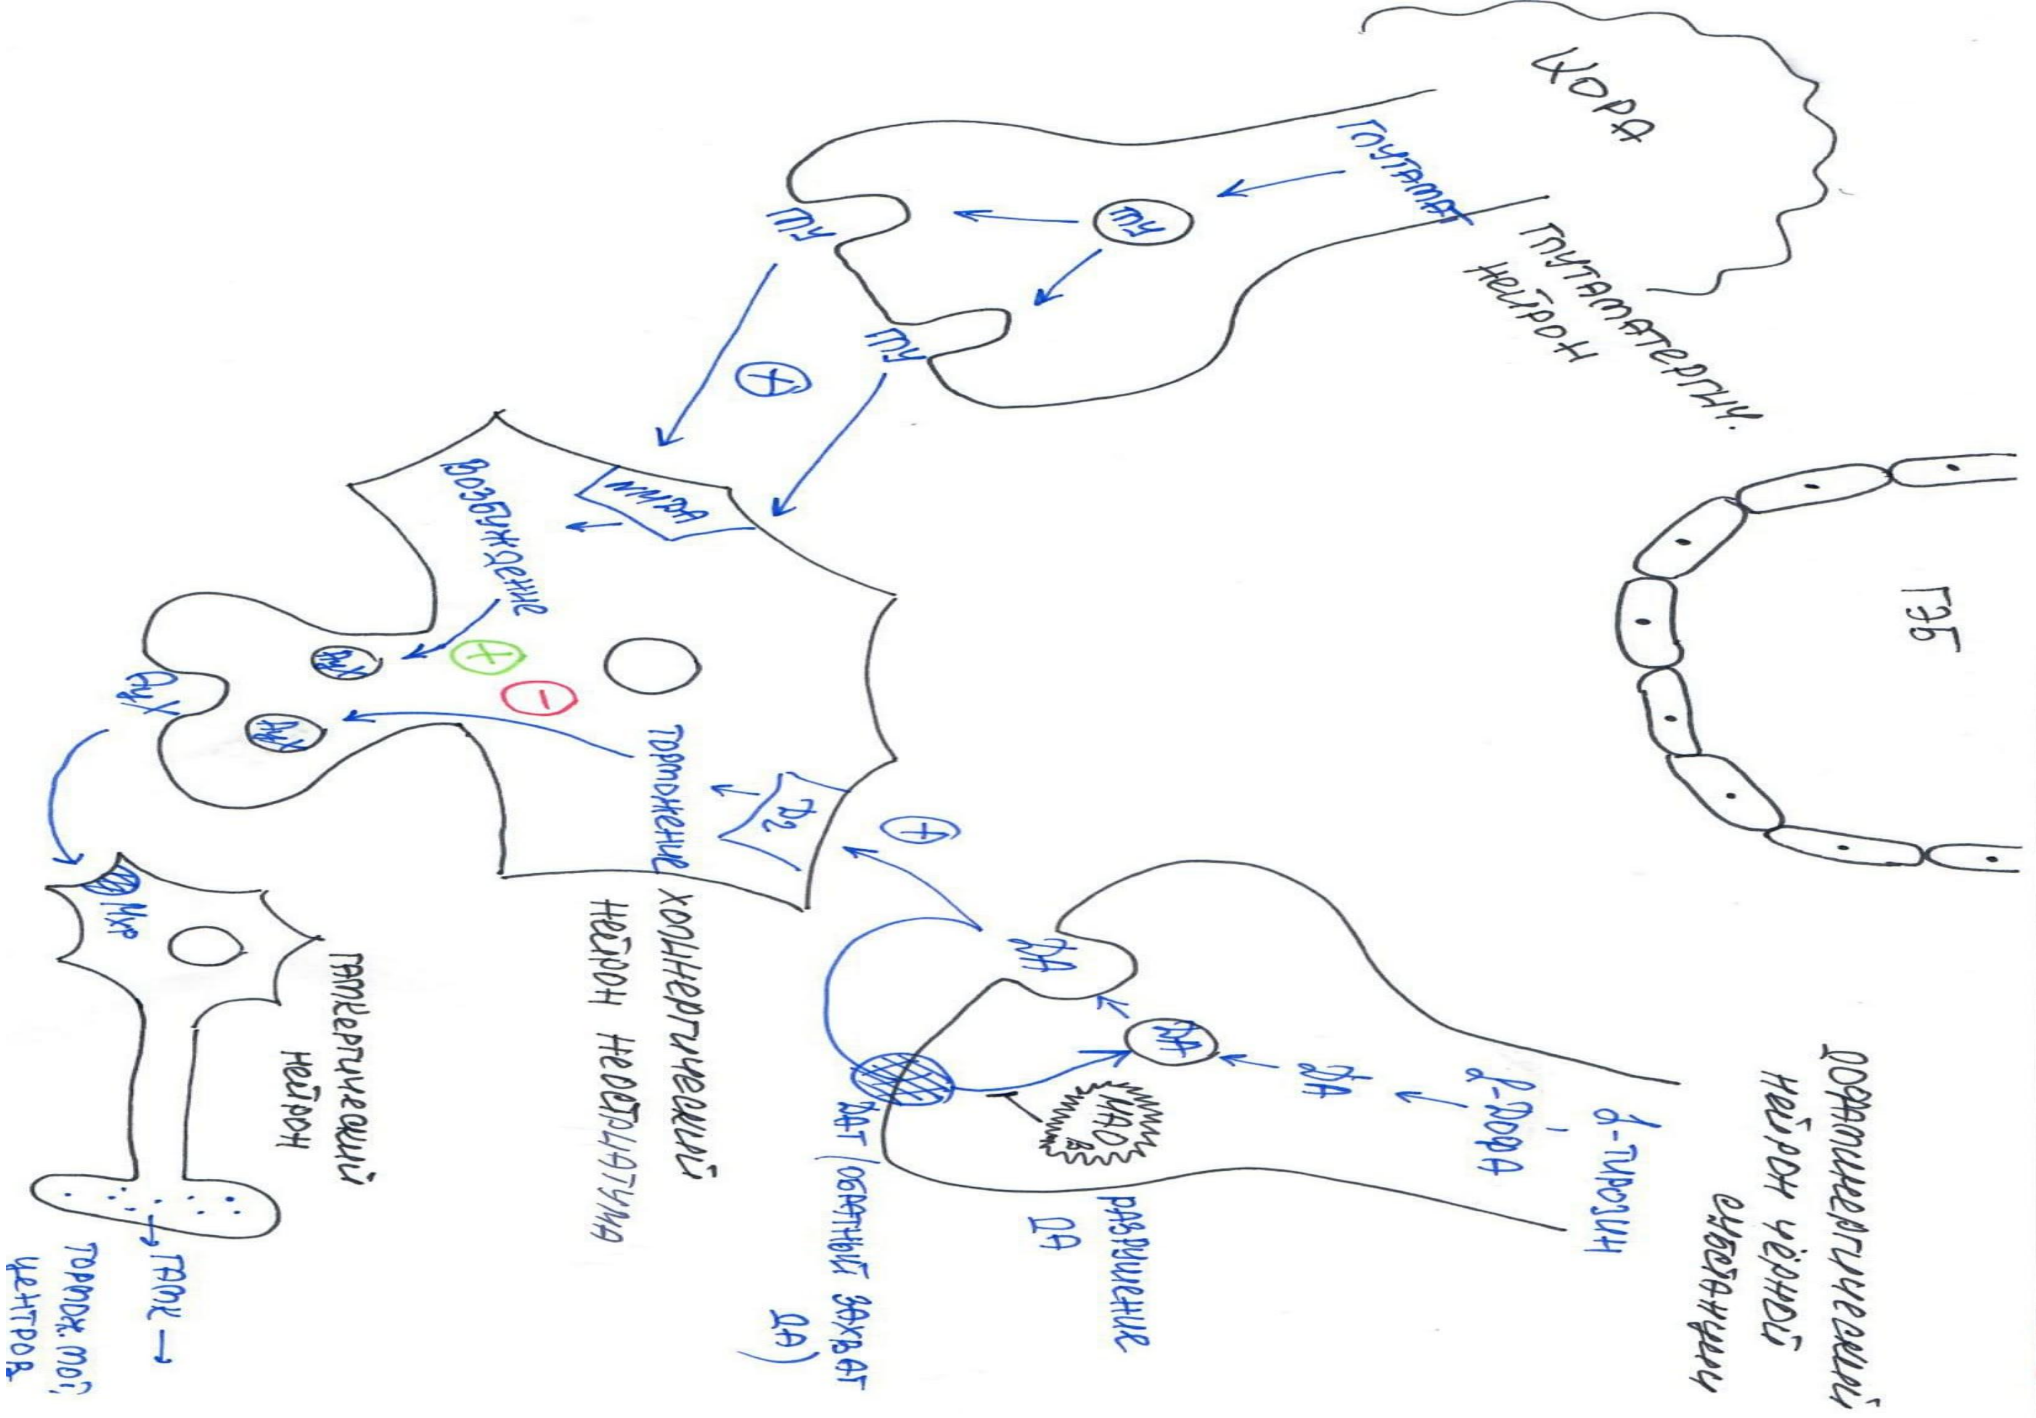 КОРА
ГЛУТАМАТЕРГИЧ.
НЕЙРОН
ГЛУТАМАТ
ГЛУ
ГЛУ
ГЛУ
+
ГЭБ
NMDA
ВОЗБУЖДЕНИЕ
+
−
АцХ
АцХ
АцХ
ТОРМОЖЕНИЕ
D2
+
ХОЛИНЕРГИЧЕСКИЙ
НЕЙРОН НЕОСТРИАТУМА
ДОФАМИНЕРГИЧЕСКИЙ
НЕЙРОН ЧЁРНОЙ
СУБСТАНЦИИ
L-ТИРОЗИН
L-ДОФА
ДА
ДА
ДА
МАО
В
РАЗРУШЕНИЕ
ДА
ДАТ (ОБРАТНЫЙ ЗАХВАТ
ДА)
МХР
ГАМКЕРГИЧЕСКИЙ
НЕЙРОН
→ ГАМК →
ТОРМОЖ. МОТ.
ЦЕНТРОВ